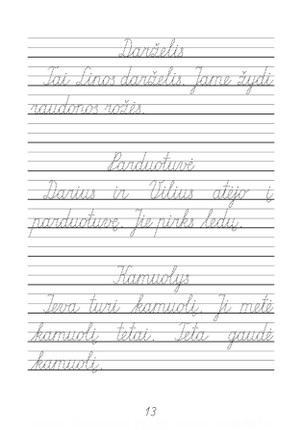 Darželis
Tai Linos darželis. Jame žydi
raudonos rožės.
Parduotuvė
Darius ir Vilius atėjo į
parduotuvę. Jie pirks ledų.
Kamuolys
Ieva turi kamuolį. Ji metė
kamuolį tetai. Teta gaudė
kamuolį.
13